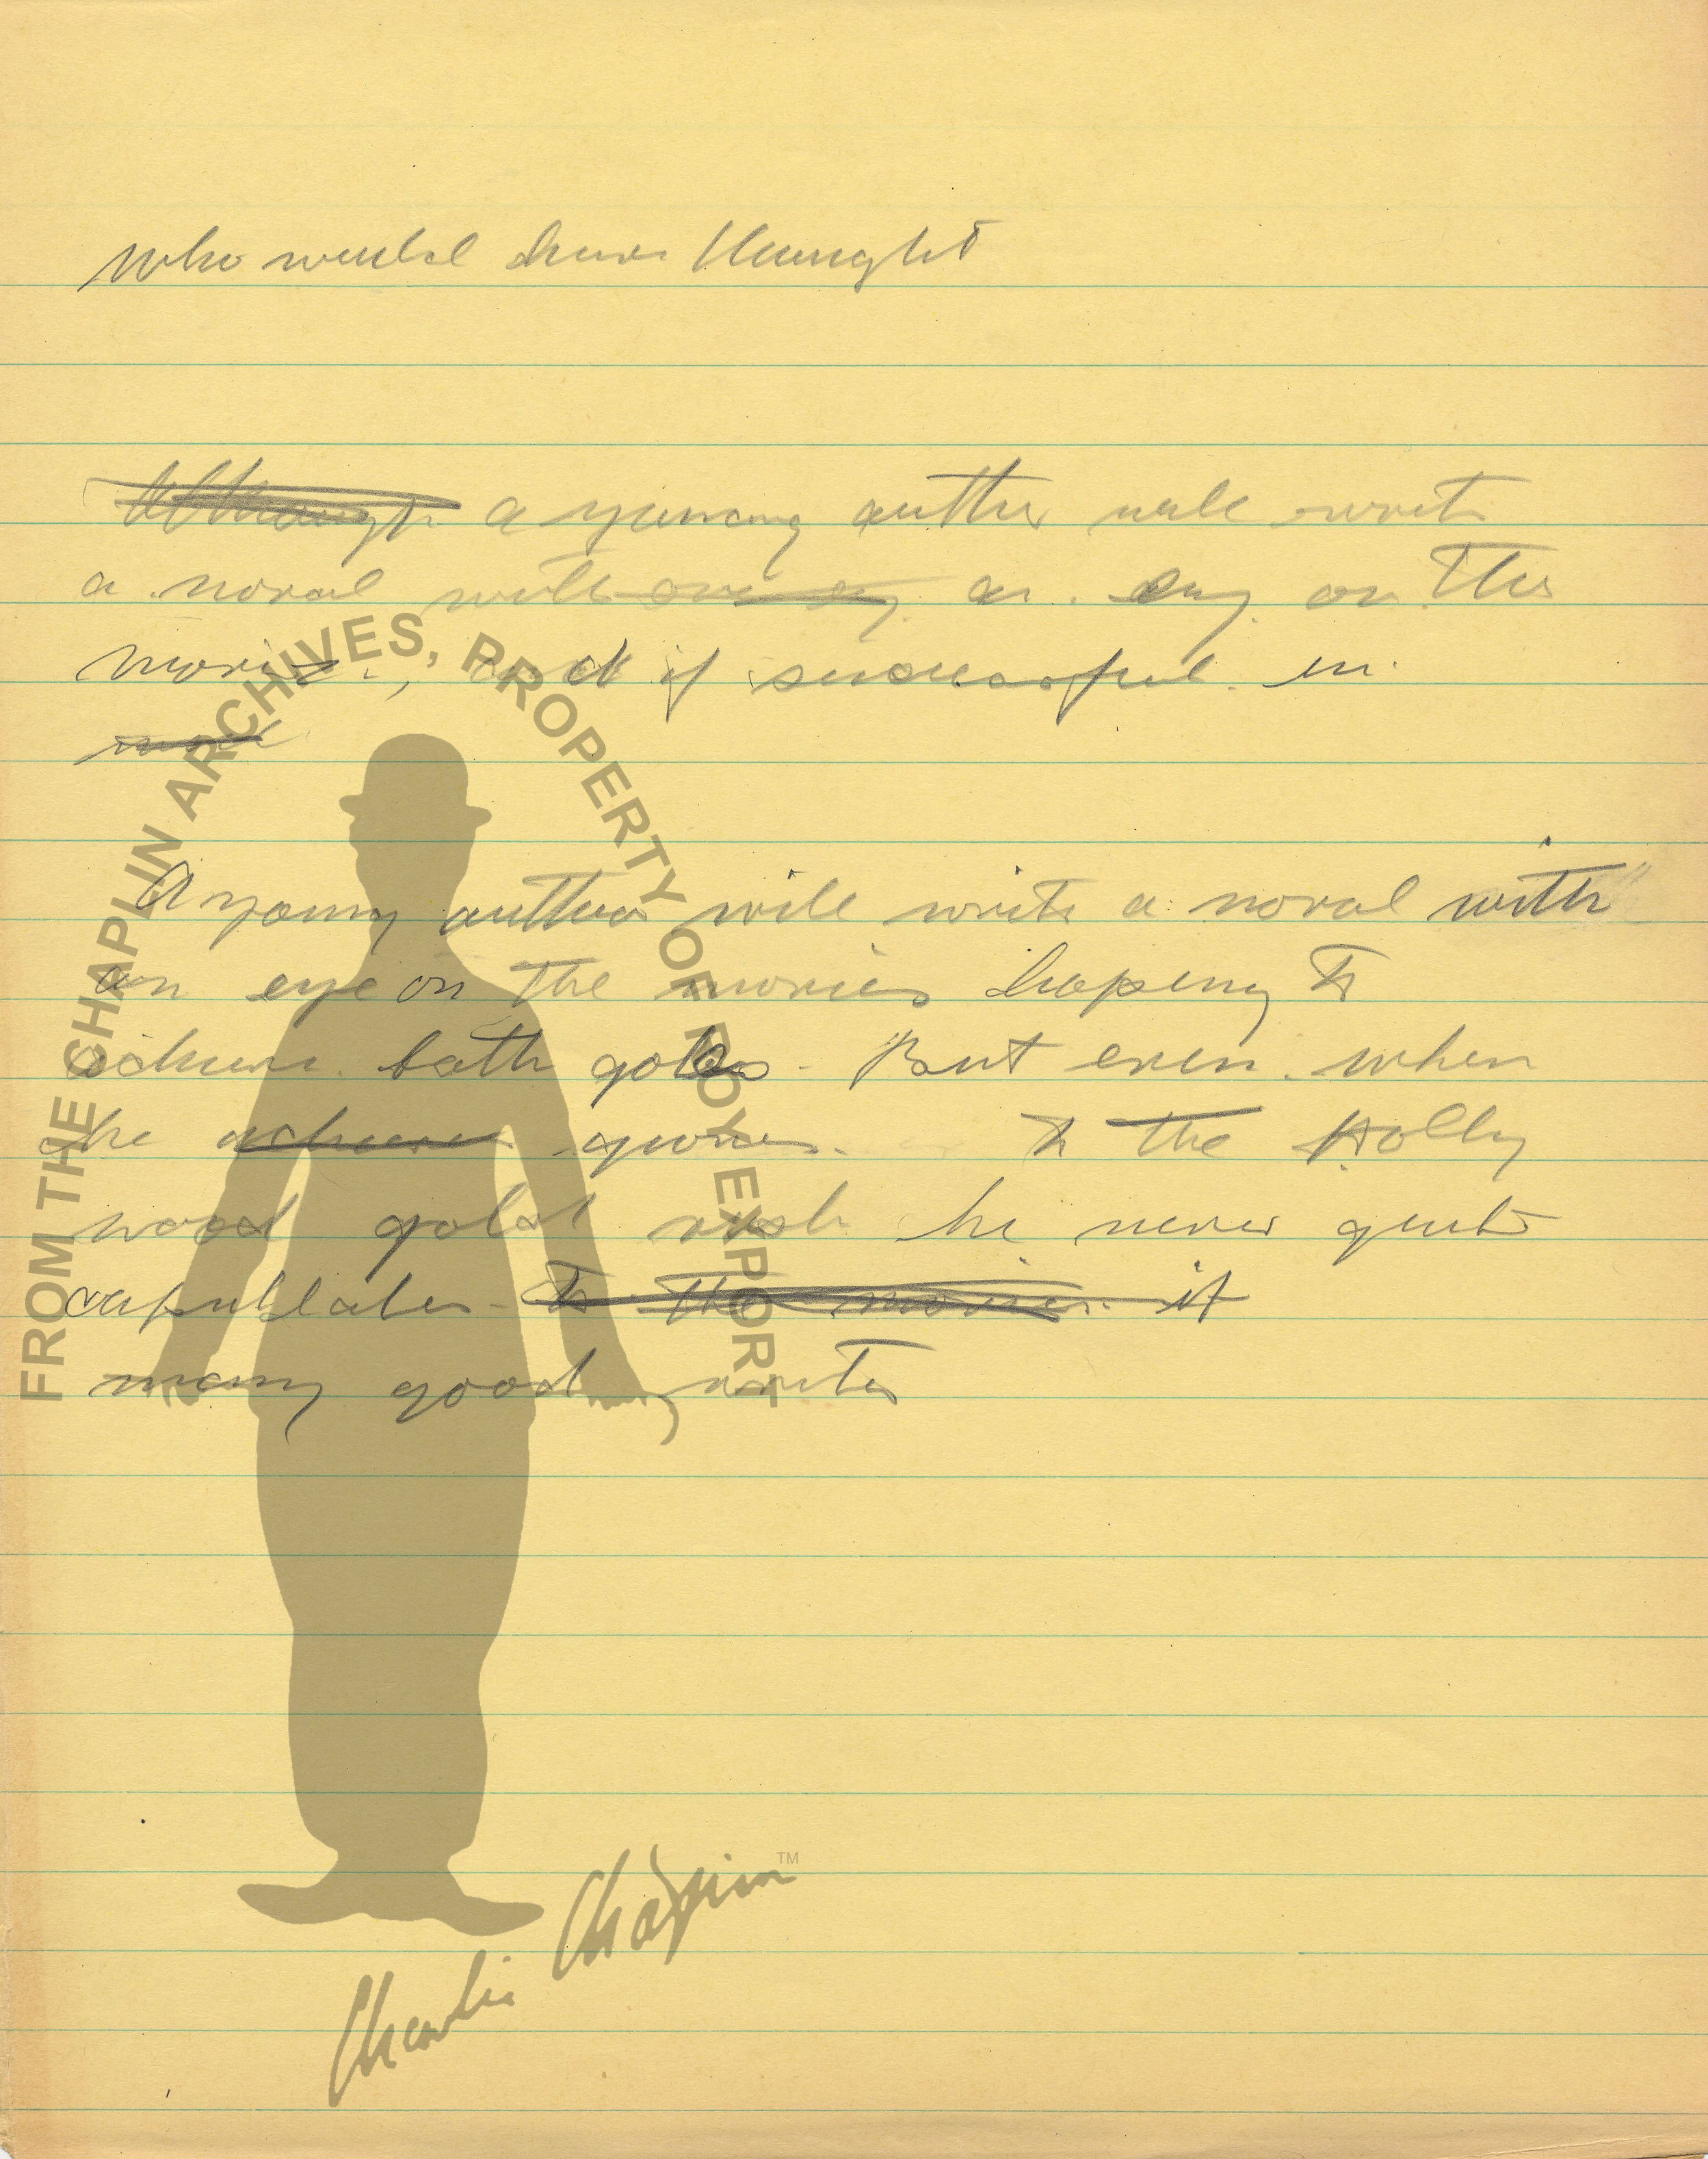 who would have thought
Although a young author will write
a noval with an ey on the
movies, and if successful in
A young author will write a noval with
an eye on the movies hopeing to
achieve both goles. But even when
he achieves joines to the Holly
wood gold rush he never quite
capublates to the movies it
many good writes
FROM THE CHAPLIN ARCHIVES, PROPERTY OF ROY EXPORT
Charlie Chaplin™